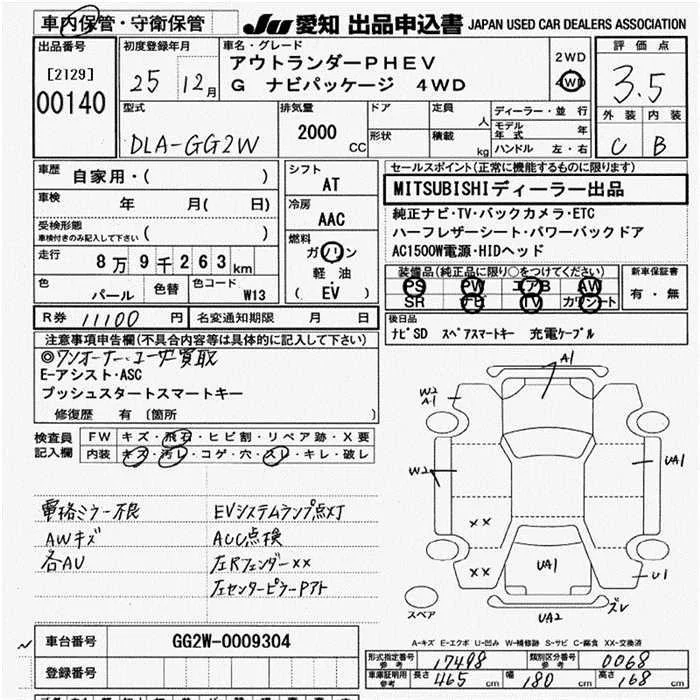 車内保管・守衛保管
JU 愛知 出品申込書 JAPAN USED CAR DEALERS ASSOCIATION
出品番号
[2129]
00140
初度登録年月
25 12月
車名・グレード
アウトランダーPHEV
G ナビパッケージ 4WD
2WD
4WD
評価点
3.5
外装 内装
C B
型式
DLA-GG2W
排気量
2000
CC
ドア
形状
定員
人
積載
kg
ディーラー・並行
モデル年式 年
ハンドル 左・右
車歴
自家用・( )
車検
年 月( 日)
受検形態
車検付きのみ記入して下さい ( )
走行
8万9千263km
色
パール
色替
色コード
W13
シフト
AT
冷房
AAC
燃料
ガソリン
軽油
( EV )
セールスポイント(正常に機能するものに限ります)
MITSUBISHIディーラー出品
純正ナビ・TV・バックカメラ・ETC
ハーフレザーシート・パワーバックドア
AC1500W電源・HIDヘッド
装備品(純正品に限り○をつけてください)
PS PW エアB AW
SR ナビ TV カワシート
新車保証書
有・無
R券 11100 円
名変通知期限 月 日
後日品
ナビSD スペアスマートキー 充電ケーブル
注意事項申告欄(不具合内容等は具体的に記入して下さい)
◎ワンオーナー・ユーザー買取
E-アシスト・ASC
プッシュスタートスマートキー
修復歴 有 〔箇所 〕
検査員記入欄
FW キズ・飛石・ヒビ割・リペア跡・X要
内装 キズ・汚レ・コゲ・穴・スレ・キレ・破レ
電格ミラー不良
AWキズ
各AU
EVシステムランプ点灯
ACC点検
左Rフェンダー××
左センターピラーPアト
A1
W2
A1
W2
UA1
××
××
UA1
U1
UA2
ズレ
スペア
A-キズ E-エクボ U-凹み W-補修跡 S-サビ C-腐食 XX-交換済
車台番号
GG2W-0009304
登録番号
形式指定番号
参考
17498
類別区分番号
参考
0068
車庫証明用
参考
長さ 465 cm 幅 180 cm 高さ 168 cm